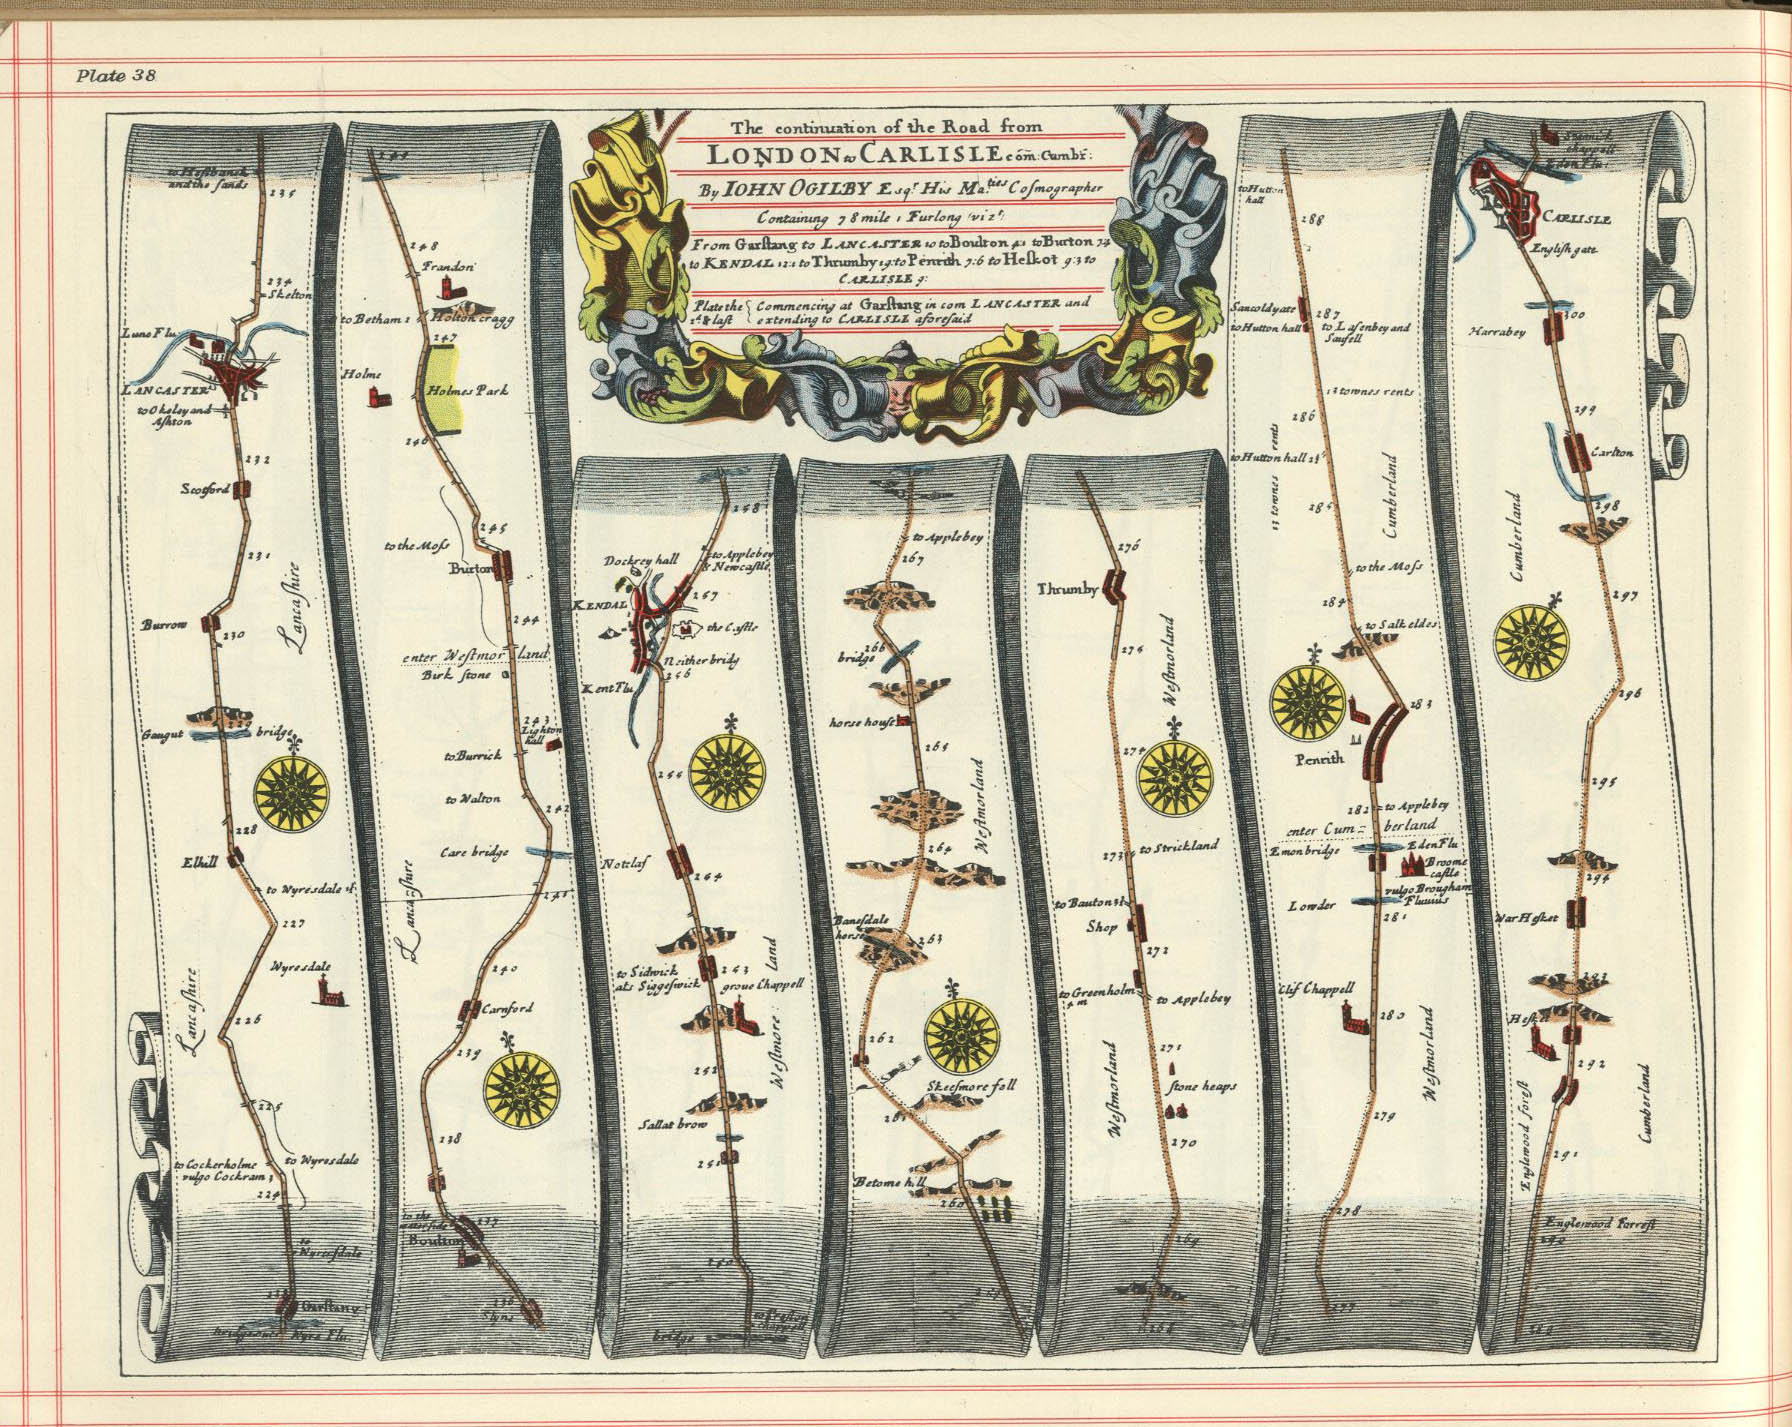 Plate 38
The continuation of the Road from
LONDON to CARLISLE com: Cumbr:
By IOHN OGILBY Esqr. His Maties Cosmographer
Containing 78 mile 1 Furlong (vizt)
From Garstang to LANCASTER 10 to Boulton 4.1 to Burton 7.4
to KENDAL 12.1 to Thrumby 19. to Penrith 7.6 to Heskot 9.3 to
CARLISLE 9.
Plate the Commencing at Garstang in com LANCASTER and
2d. & last extending to CARLISLE aforesaid
to Hestbanck
and the sands
235
234
Skelton
Lune Flu
LANCASTER
to Okeley and
Ashton
232
Scotford
231
Lancashire
Burrow
230
229
Gaugut bridge
228
Elhill
to Wyresdale
227
Wyresdale
Lancashire
226
225
to Cockerholme
vulgo Cockram 3
to Wyresdale
224
to
Wyresdale
Garstang
Wyre Flu.
249
248
Frandon
to Betham 1
Holton cragg
247
Holme
Holmes Park
246
245
to the Moss
Burton
244
enter Westmorland
Birk stone
243
Lighton
hall
to Burrick
to Walton
242
Care bridge
241
Lancashire
240
Carnford
239
238
to the
water side
237
Boulton
236
Slyne
258
Dockrey hall
to Appleby
& Newcastle
KENDAL
257
the Castle
Neither bridg
256
Kent Flu
255
Nottlaf
254
to Sidwick
als Siggeswick
253
grove Chappell
Westmorland
252
Sallat brow
251
250
bridge
to Appleby
267
266
bridge
horse house
265
Westmorland
264
Banesdale
horse
263
262
Skeesmore fell
261
Betome hill
260
276
Thrumby
275
Westmorland
274
273
to Strickland
to Bauton
Shop
272
to Greenholm
4 m
to Appleby
271
Stone heaps
Westmorland
270
269
268
to Hutton
hall
288
Sancoldyate
287
to Hutton hall
to Lasenbey and
Saufell
12 townes rents
286
13 townes rents
to Hutton hall
Cumberland
285
to the Moss
284
to Salkeldes
283
Penrith
282
to Appleby
enter Cumberland
Emonbridge
Eden Flu
Broome
castle
vulgo Brougham
Lowder
Fluvius
281
Clif Chappell
280
Westmorland
279
278
277
Spaniel
chappell
Eden Flu.
CARLISLE
English gate
300
Harrabey
299
Carlton
298
Cumberland
297
296
295
294
War Hesket
293
Hesket
292
291
Englewood forest
Cumberland
Englewood Forrest
290